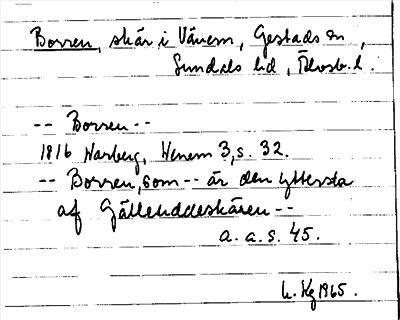 Borren, skär i Vänern, Gestads sn,
Sundals hd, Älvsb. l.
-- Borren --
1816 Warberg, Wenern 3, s. 32.
-- Borren, som -- är den yttersta
af Gälleuddeskären --
a. a. s. 45.
Kg 1965.